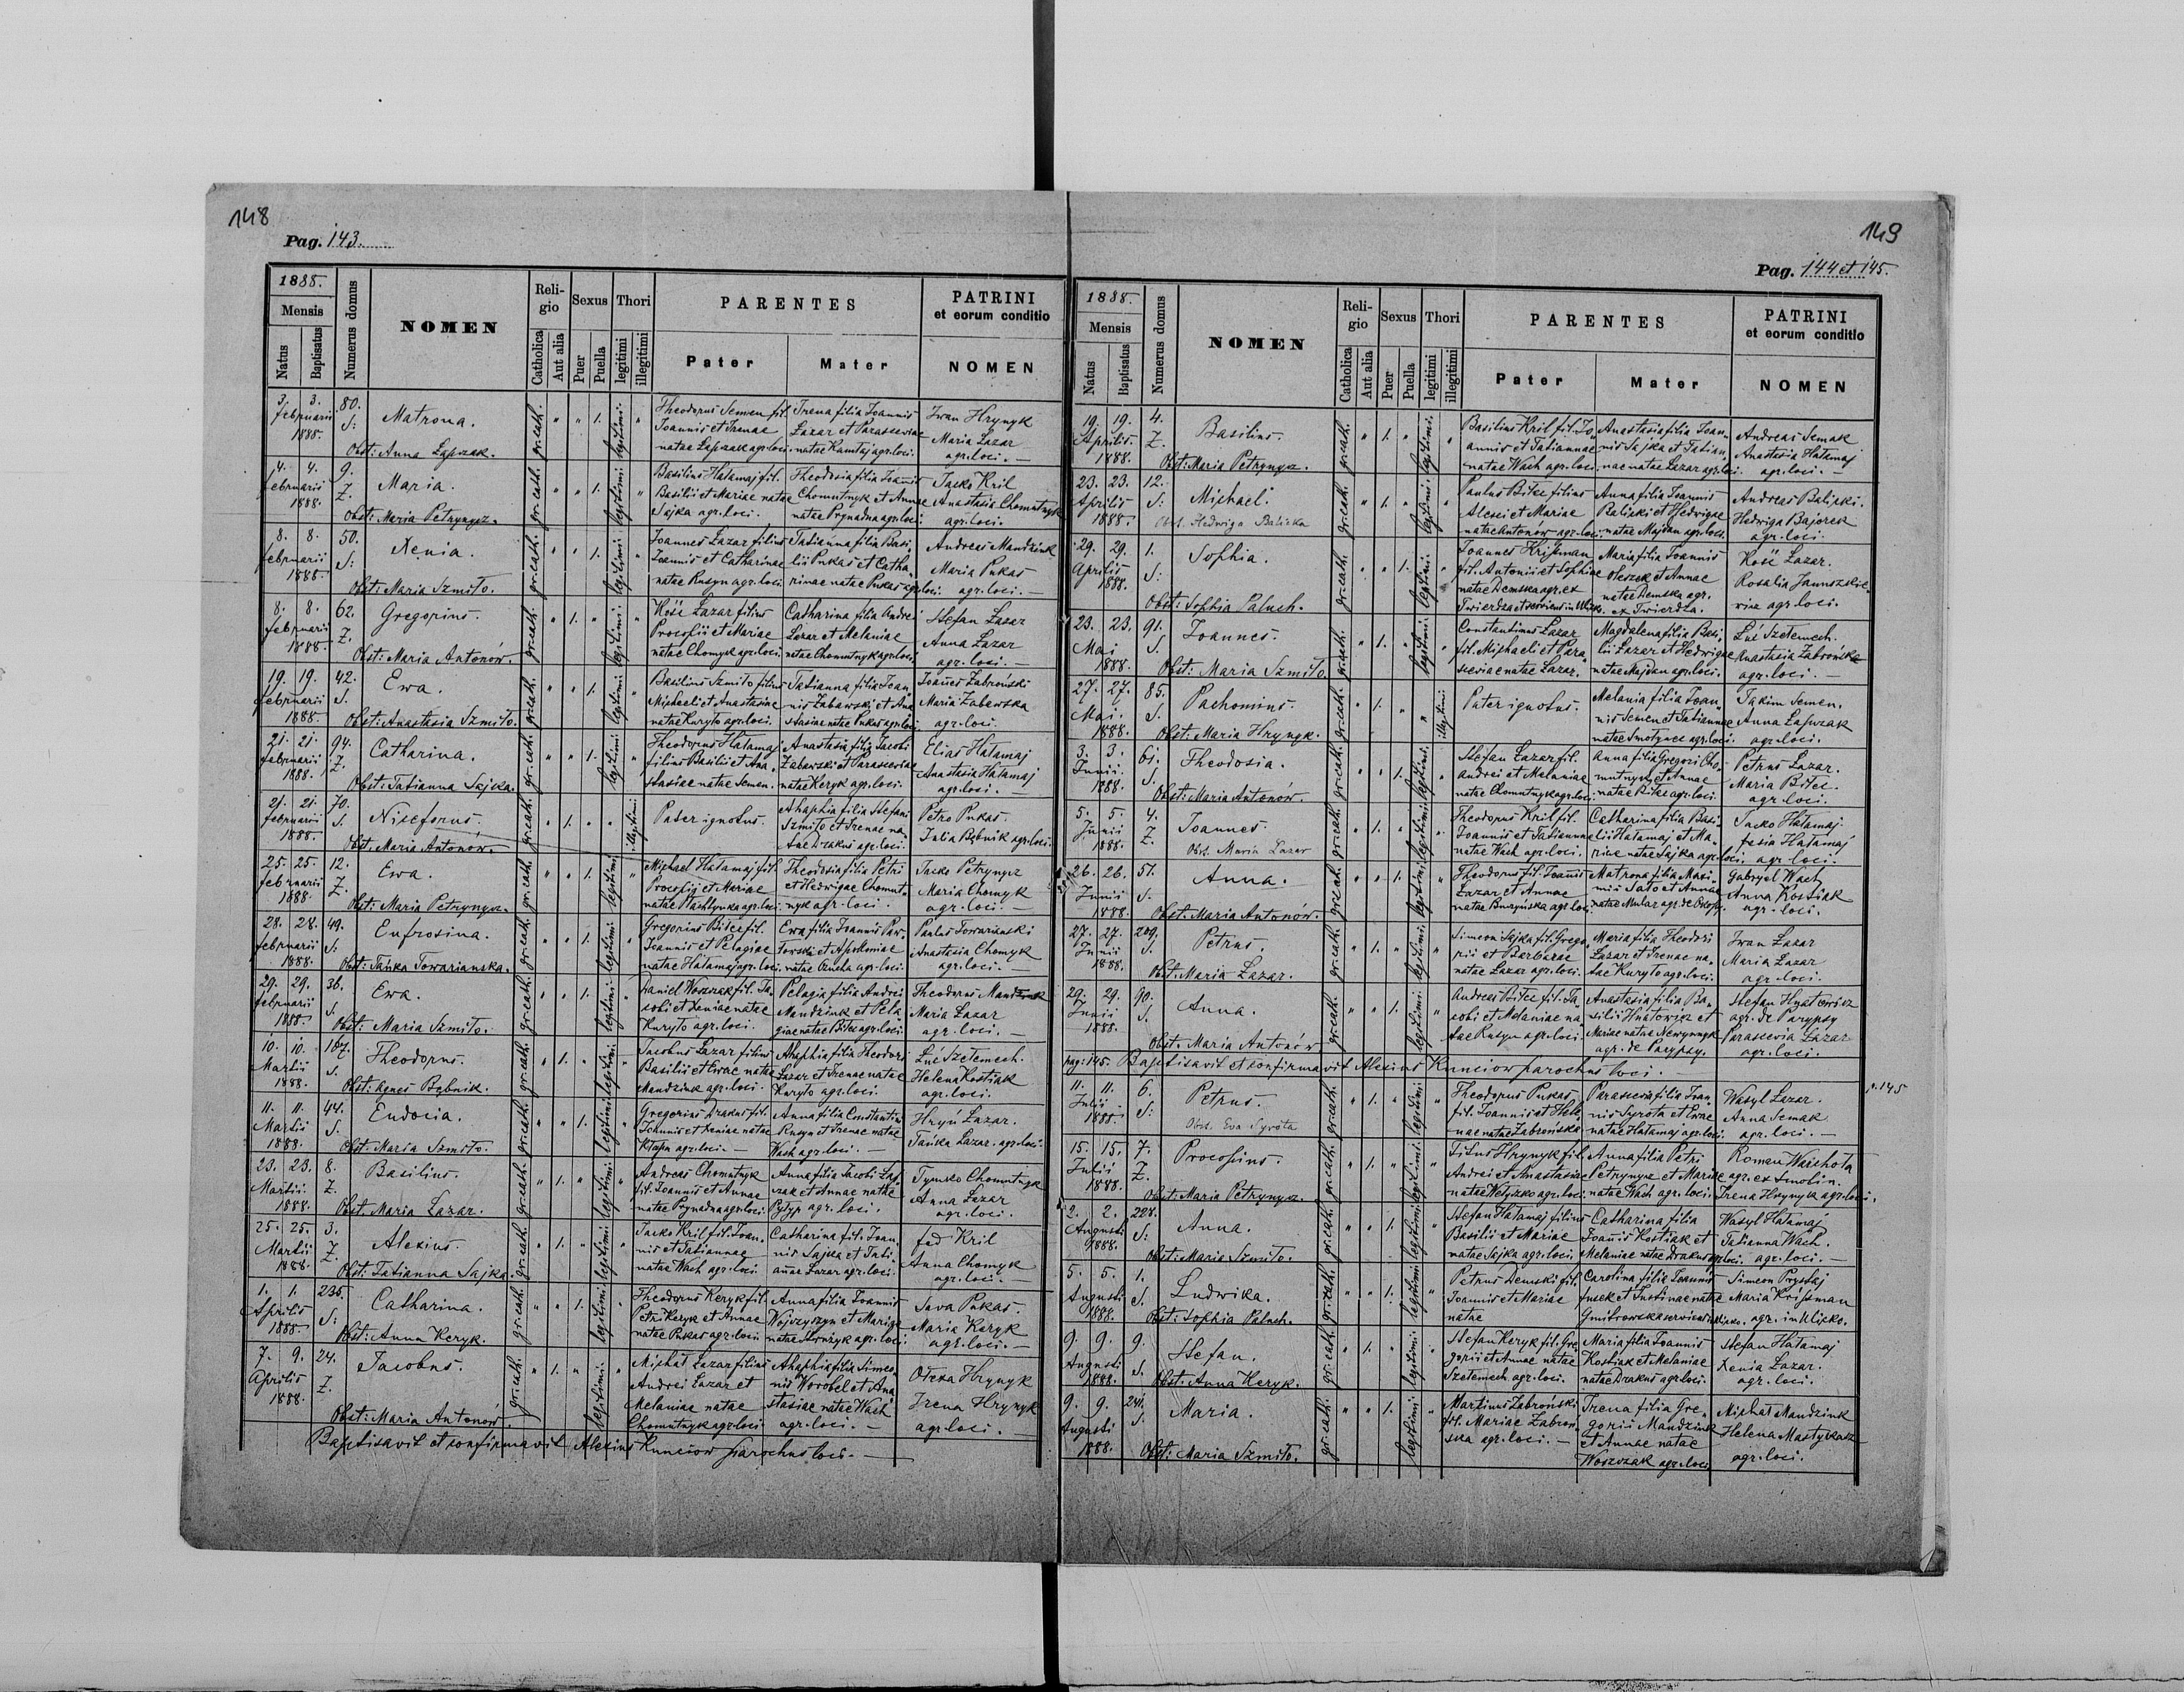 148
Pag. 143.
1888.
Mensis
Natus
Baptisatus
Numerus domus
NOMEN
Religio
Catholica
Aut alia
Sexus
Puer
Puella
Thori
legitimi
illegitimi
PARENTES
Pater
Mater
PATRINI
et eorum conditio
NOMEN
3. 3. 80. Matrona. gr. cath. " " 1. legitimi. "
februarii S.
1888.
Obst: Anna Łapczak.
Theodorus Semen fil.
Joannis et Irenae
natae Łapczak agr. loci.
Irena filia Joannis
Lazar et Parasceviae
natae Kuntaj agr. loci.
Iwan Hrynyk
Maria Lazar
agr. loci. —
4. 4. 9. Maria. gr. cath. " " 1. legitimi "
februarii Z.
1888.
Obst: Maria Petrynycz.
Basilius Hatamaj fil.
Basilii et Mariae natae
Sajka agr. loci.
Theodosia filia Joannis
Chomutnyk et Annae
natae Prynadna agr. loci.
Jacko Kril
Anastasia Chomutnyk
agr. loci.
8. 8. 50. Xenia. gr. cath. " " 1. legitimi "
februarii S.
1888.
Obst: Maria Szmiło.
Joannes Lazar filius
Joannis et Catharinae
natae Rusyn agr. loci.
Tatianna filia Basi-
lii Pukas et Catha-
rinae natae Pukas agr. loci.
Andreas Mandziuk
Maria Pukas
agr. loci. —
8. 8. 62. Gregorius. gr. cath. " 1. " legitimi "
februarii Z.
1888.
Obst: Maria Antonów.
Kość Lazar filius
Procopii et Mariae
natae Chomyk agr. loci.
Catharina filia Andrei
Lazar et Melaniae
natae Chomutnyk agr. loci.
Stefan Lazar
Anna Lazar
agr. loci. —
19. 19. 42. Ewa. gr. cath. " " 1. legitimi "
februarii S.
1888.
Obst: Anastasia Szmiło.
Basilius Szmiło filius
Michaeli et Anastasiae
natae Kuryło agr. loci.
Tatianna filia Joan-
nis Zabawski et Ana-
stasiae natae Pukas agr. loci.
Joannes Zabroński
Maria Zabawska
agr. loci.
21. 21. 94. Catharina. gr. cath. " " 1. legitimi "
februarii Z.
1888.
Obst: Tatianna Sajka.
Theodorus Hatamaj
filius Basilii et Ana-
stasiae natae Semen.
Anastasia filia Jacobi
Zabawski et Parasceviae
natae Keryk agr. loci.
Elias Hatamaj
Anastasia Hatamaj
agr. loci. —
21. 21. 70. Niceforus. gr. cath. " 1. " " illegitimi
februarii S.
1888.
Obst: Maria Antonów.
Pater ignotus.
Ahaphia filia Stefani
Szmiło et Irenae na-
tae Drakus agr. loci.
Petro Pukas.
Julia Bębnik agr. loci.
25. 25. 12. Ewa. gr. cath. " " 1. legitimi "
februarii Z.
1888.
Obst: Maria Petrynycz.
Michael Hatamaj fil.
Procopij et Mariae
agr. loci.
Theodosia filia Petri
et Hedwigae Chomut-
nyk agr. loci.
Jacko Petrynycz
Maria Chomyk
agr. loci. —
28. 28. 49. Eufrosina. gr. cath. " " 1. legitimi "
februarii S.
1888.
Obst: Tańka Towarianska.
Gregorius Bilec fil.
Joannis et Pelagiae
natae Hatamaj agr. loci.
Ewa filia Joannis Paw-
łowski et Apoloniae
agr. loci.
Paulus Towarianski
Anastasia Chomyk
agr. loci. —
29. 29. 36. Ewa. gr. cath. " " 1. legitimi "
februarii S.
1888.
Obst: Maria Szmiło.
Daniel Woszczak fil. Ja-
cobi et Xeniae natae
Kuryło agr. loci.
Pelagia filia Andrei
Mandziuk et Pela-
giae natae Bilec agr. loci.
Theodorus Mandziuk
Maria Lazar
agr. loci. —
10. 10. 187. Theodorus. gr. cath. " 1. " legitimi "
Martii S.
1888.
Obst: Agnes Bębnik.
Jacobus Lazar filius
Basilii et Ewae natae
Mandziuk agr. loci.
Ahaphia filia Theodori
Lazar et Irenae natae
Kuryło agr. loci.
Luć Szełemech.
Helena Kostiak
agr. loci.
11. 11. 44. Eudocia. gr. cath. " " 1. legitimi "
Martii S.
1888.
Obst: Maria Szmiło.
Gregorius Drakus fil.
et Xeniae natae
agr. loci. —
Anna filia Constantini
Rusyn et Irenae natae
Wach agr. loci. —
Hryń Lazar.
Tańka Lazar. agr. loci.
23. 23. 8. Basilius. gr. cath. " 1. " legitimi "
Martii Z.
1888.
Obst: Maria Lazar.
Andreas Chomutnyk
fil. Joannis et Annae
natae Prynadna agr. loci.
Anna filia Jacobi Łap-
czak et Annae natae
Pyłyp agr. loci.
Tymko Chomutnyk
Anna Lazar
agr. loci.
25. 25. 3. Alexius. gr. cath. " 1. " legitimi "
Martii Z.
1888.
Obst: Tatianna Sajka.
Jacko Kril fil. Joan-
nis et Tatiannae
natae Wach agr. loci.
Catharina fil. Joan-
nis Sajka et Tati-
annae Lazar agr. loci.
fed Kril
Anna Chomyk
agr. loci. —
1. 1. 235. Catharina. gr. cath. " " 1. legitimi "
Aprilis S.
1888.
Obst: Anna Keryk.
Theodorus Keryk fil.
Petri Keryk et Annae
natae Pukas agr. loci.
Anna filia Joannis
Wojczyszyn et Mariae
natae agr. loci.
Sava Pukas.
Maria Keryk
agr. loci. —
7. 9. 24. Jacobus. gr. cath. " 1. " legitimi "
Aprilis Z.
1888.
Obst: Maria Antonów
Michał Lazar filius
Andrei Lazar et
Melaniae natae
Chomutnyk agr. loci.
Ahaphia filia Simeo-
nis Worobel et Ana-
stasiae natae Wach
agr. loci. —
Ołexa Hrynyk
Irena Hrynyk
agr. loci.
Baptisavit et confirmavit Alexius Kunciow parochus loci. —
149
Pag. 144 et 145.
1888.
Mensis
Natus
Baptisatus
Numerus domus
NOMEN
Religio
Catholica
Aut alia
Sexus
Puer
Puella
Thori
legitimi
illegitimi
PARENTES
Pater
Mater
PATRINI
et eorum conditio
NOMEN
19. 19. 4. Basilius. gr. cath. " 1. " legitimi. "
Aprilis. Z.
1888.
Obst: Maria Petrynycz.
Basilius Kril fil. Jo-
annis et Tatiannae
natae Wach agr. loci.
Anastasia filia Joan-
nis Sajka et Tatian-
nae natae Lazar agr. loci.
Andreas Semak
Anastasia Hatamaj
agr. loci. —
23. 23. 12. Michael. gr. cath. " 1. " legitimi "
Aprilis S.
1888.
Obst. Hedwiga Balicka
Paulus Bilec filius
Alexii et Mariae
natae Antonów agr. loci.
Anna filia Joannis
Baliski et Hedwigae
natae Majdan agr. loci.
Andreas Baliski.
Hedwiga Bajorek
agr. loci.
29. 29. 1. Sophia. gr. cath. " " 1. legitimi "
Aprilis S.
1888.
Obst: Sophia Paluch.
Joannes Krissman
fil. Antonii et Sophiae
natae Demska agr. ex
Twierdza et
Maria filia Joannis
Oleszek et Annae
natae Demska agr.
ex Twierdza.
Kość Lazar.
Rosalia
agr. loci.
23. 23. 91. Joannes. gr. cath. " 1. " legitimi "
Mai S.
1888.
Obst: Maria Szmiło.
Constantinus Lazar
fil. Michaeli et Para-
sceviae natae Lazar.
Magdalena filia Basi-
lii Lazar et Hedwigae
natae Majdan agr. loci.
Luć Szełemech.
Anastasia Zabrońska
agr. loci. —
27. 27. 85. Pachomius. gr. cath. " 1. " " illegitimi
Mai. S.
1888.
Obst: Maria Hrynyk.
Pater ignotus.
Melania filia Joan-
nis Semen et Tatiannae
natae Smotrycz agr. loci.
Jakim Semen.
Anna Łapczak
agr. loci.
3. 3. 61. Theodosia. gr. cath. " " 1. legitimi "
Junii S.
1888.
Obst: Maria Antonów.
Stefan Lazar fil.
Andrei et Melaniae
natae Chomutnyk agr. loci.
Anna filia Gregorii Cho-
mutnyk et Annae
natae Bilec agr. loci.
Petrus Lazar.
Maria Bilec.
agr. loci.
5. 5. 4. Joannes. gr. cath. " 1. " legitimi "
Junii Z.
1888.
Obst. Maria Lazar
Theodorus Kril fil.
Joannis et Tatiannae
natae Wach agr. loci.
Catharina filia Basi-
lii Hatamaj et Ma-
riae natae Sajka agr. loci.
Jacko Hatamaj
fesia Hatamaj
agr. loci.
26. 26. 57. Anna. gr. cath. " " 1. legitimi "
Junii S.
1888.
Obst: Maria Antonów.
Theodorus fil. Joannis
Lazar et Annae
natae agr. loci.
Matrona filia Maxi-
mi Sato et Annae
natae Mular agr. de
Gabryel Wach
Anna Kostiak
agr. loci.
27. 27. 209. Petrus. gr. cath. " 1. " legitimi "
Junii S.
1888.
Obst: Maria Lazar.
Simeon Sajka fil. Grego-
rii et Barbarae
natae Lazar agr. loci.
Maria filia Theodori
Lazar et Irenae na-
tae Kuryło agr. loci.
Iwan Lazar
Maria Lazar
agr. loci.
29. 29. 90. Anna. gr. cath. " " 1. legitimi "
Junii S.
1888.
Obst: Maria Antonów
Andreas Bilec fil. Ja-
cobi et Melaniae na-
tae Rusyn agr. loci.
Anastasia filia Ba-
silii Hnatowicz et
Mariae natae
agr. de Parypsy.
Stefan Hnatowicz
agr. de Parypsy
Parascevia Lazar
agr. loci.
pag: 145. Baptisavit et confirmavit Alexius Kunciow parochus loci.
p. 145
11. 11. 6. Petrus. gr. cath. " 1. " legitimi "
Julii S.
1888.
Obst. Eva Syrota
Theodorus Pukas
fil. Joannis et Hele-
nae natae Zabrońska
Parascevia filia Joan-
nis Syrota et Ewae
natae Hatamaj agr. loci.
Wasyl Lazar.
Anna Semak
agr. loci. —
15. 15. 7. Procopius. gr. cath. " 1. " legitimi "
Julii Z.
1888.
Obst: Maria Petrynycz.
Titus Hrynyk fil.
Andrei et Anastasiae
natae Wetyszko agr. loci.
Anna filia Petri
Petrynycz et Mariae
natae Wach agr. loci.
Roman Warchoła
agr. ex Smolin.
Irena Hrynyk agr. loci.
2. 2. 228. Anna. gr. cath. " " 1. legitimi "
Augusti S.
1888.
Obst: Maria Szmiło.
Stefan Hatamaj filius
Basilii et Mariae
natae Sajka agr. loci.
Catharina filia
Joannis Kostiak et
Melaniae natae Drakus agr. loci.
Wasyl Hatamaj
Tatianna Wach.
agr. loci. —
5. 5. 1. Ludwika. gr. cath. " " 1. legitimi "
Augusti S.
1888.
Obst: Sophia Paluch.
Petrus Demski fil.
Joannis et Mariae
natae
Carolina filia Joannis
fusek et Justinae natae
Gmitrowska
Simeon Prystaj
Maria Krissman
agr. in Ulicko.
9. 9. 9. Stefan. gr. cath. " 1. " legitimi "
Augusti S.
1888.
Obst: Anna Keryk.
Stefan Keryk fil. Gre-
gorii et Annae natae
Szełemech agr. loci.
Maria filia Joannis
Kostiak et Melaniae
natae Drakus agr. loci.
Stefan Hatamaj
Xenia Lazar.
agr. loci.
9. 9. 241. Maria. gr. cath. " " 1. legitimi "
Augusti S.
1888.
Obst: Maria Szmiło.
Martinus Zabroński
fil. Mariae Zabroń-
ska agr. loci. —
Irena filia Gre-
gorii Mandziuk
et Annae natae
Woszczak agr. loci.
Michał Mandziuk
Helena Mastykasz
agr. loci.